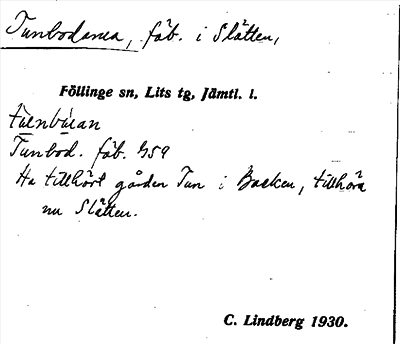 Tunbodarna, fäb. i Slåtten,
Föllinge sn, Lits tg, Jämtl. l.
Tunbod. fäb. GSA
Ha tillhört gården Tun i Backen, tillhöra
nu Slåtten.
C. Lindberg 1930.